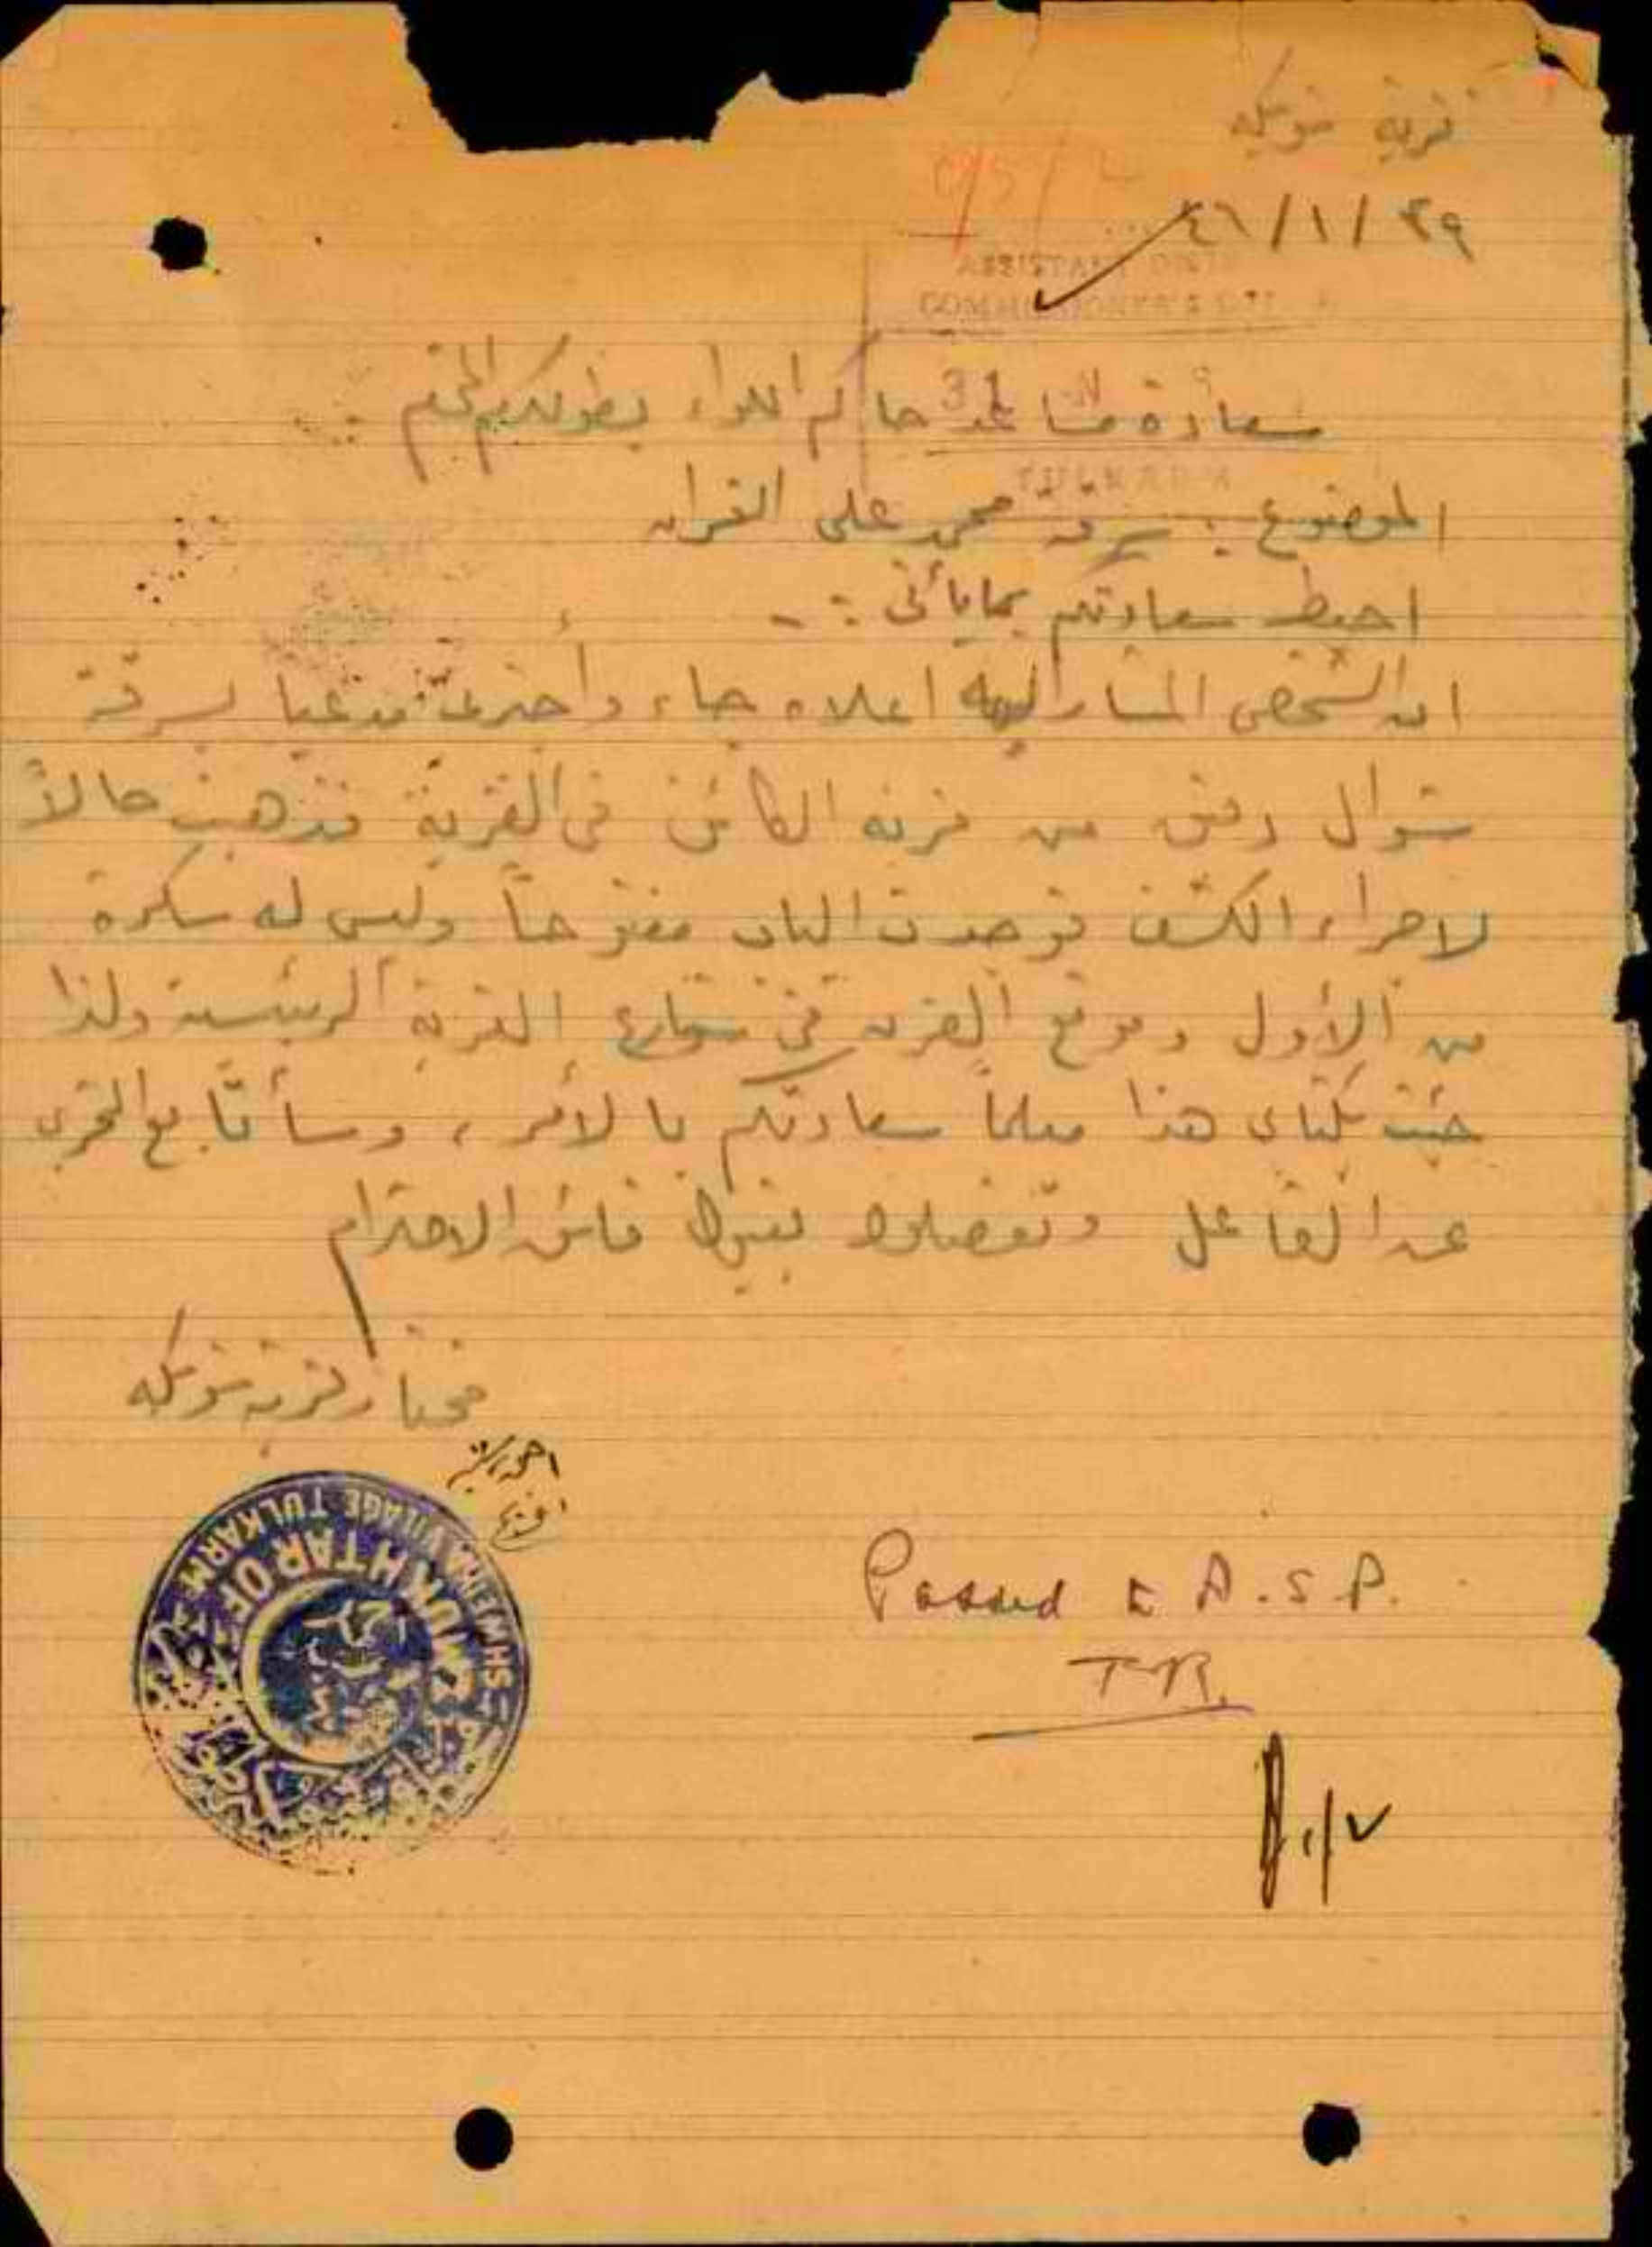 قرية شويكه
٢٩/١/٤٦
ASSISTANT
سعادة مساعد حاكم اللواء بطولكرم المحترم
31
الموضوع : سرقة محمد علي الفران
احيط سعادتكم بما يأتي :-
ان الشخص المشار اليه اعلاه جاء وأخبرني مدعيا بسرقة
شوال دقيق من فرنه الكائن في القرية فذهبت حالاً
لاجراء الكشف فوجدت الباب مفتوحاً وليس له سكرة
من الأول وموقع الفرن في شوارع القرية الرئيسية ولذا
جئت بكتابي هذا معلماً سعادتكم بالأمر ، وسأتابع التحري
عن الفاعل وتفضلوا بقبول فائق الاحترام
مختار قرية شويكه
MUKHTAR OF
VILLAGE TULKARM
Passed to A.S.P.
T-K.